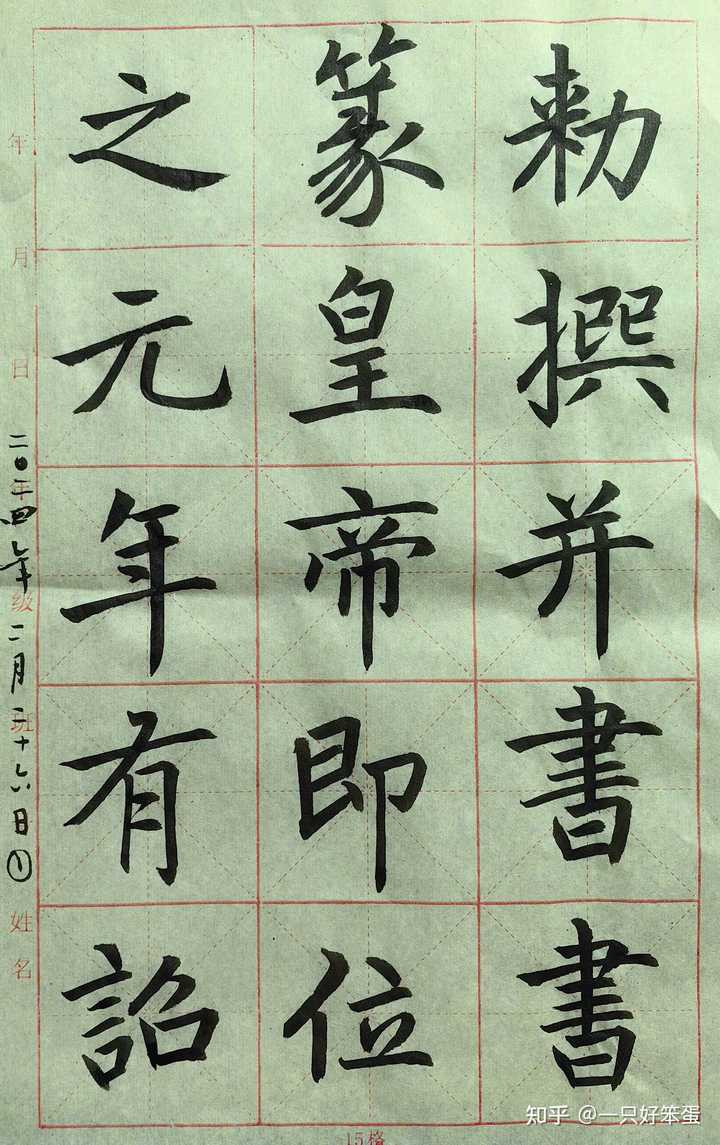 勑撰并書書
篆皇帝即位
之元年有詔
二〇二四年二月二十六日①
年 月 日
年级 班
姓名
15格
知乎 @一只好笨蛋